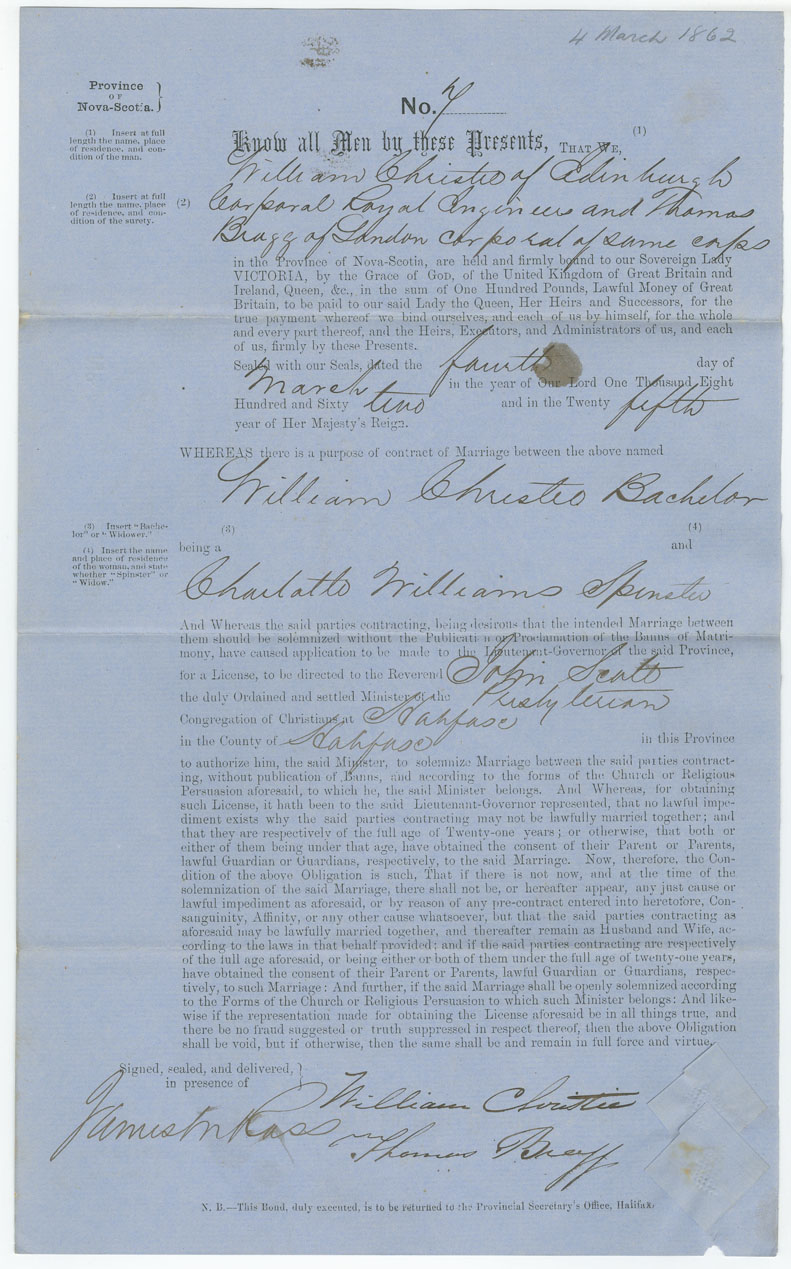 4 March 1862
Province
OF
Nova-Scotia.
No. 7
(1) Insert at full
length the name, place
of residence, and con-
dition of the man.
Know all Men by these Presents, THAT WE, (1)
William Christie of Edinburgh
(2) Insert at full
length the name, place
of residence, and con-
dition of the surety.
(2) Corporal Royal Engineers and Thomas
Bragg of London corporal of same corps
in the Province of Nova-Scotia, are held and firmly bound to our Sovereign Lady
VICTORIA, by the Grace of GOD, of the United Kingdom of Great Britain and
Ireland, Queen, &c., in the sum of One Hundred Pounds, Lawful Money of Great
Britain, to be paid to our said Lady the Queen, Her Heirs and Successors, for the
true payment whereof we bind ourselves, and each of us by himself, for the whole
and every part thereof, and the Heirs, Executors, and Administrators of us, and each
of us, firmly by these Presents.
Sealed with our Seals, dated the fourth day of
March in the year of Our Lord One Thousand Eight
Hundred and Sixty two and in the Twenty fifth
year of Her Majesty's Reign.
WHEREAS there is a purpose of contract of Marriage between the above named
William Christie Bachelor
(3) Insert "Bache-
lor" or "Widower."
(3) (4)
(4) Insert the name
and place of residence
of the woman, and state
whether "Spinster" or
"Widow."
being a and
Charlotte Williams Spinster
And Whereas the said parties contracting, being desirous that the intended Marriage between
them should be solemnized without the Publicati n or Proclamation of the Banns of Matri-
mony, have caused application to be made to the Lieutenant-Governor of the said Province,
for a License, to be directed to the Reverend John Scott
the duly Ordained and settled Minister of the Presbyterian
Congregation of Christians at Halifax
in the County of Halifax in this Province
to authorize him, the said Minister, to solemnize Marriage between the said parties contract-
ing, without publication of Banns, and according to the forms of the Church or Religious
Persuasion aforesaid, to which he, the said Minister belongs. And Whereas, for obtaining
such License, it hath been to the said Lieutenant-Governor represented, that no lawful impe-
diment exists why the said parties contracting may not be lawfully married together; and
that they are respectively of the full age of Twenty-one years; or otherwise, that both or
either of them being under that age, have obtained the consent of their Parent or Parents,
lawful Guardian or Guardians, respectively, to the said Marriage. Now, therefore, the Con-
dition of the above Obligation is such, That if there is not now, and at the time of the
solemnization of the said Marriage, there shall not be, or hereafter appear, any just cause or
lawful impediment as aforesaid, or by reason of any pre-contract entered into heretofore, Con-
sanguinity, Affinity, or any other cause whatsoever, but that the said parties contracting as
aforesaid may be lawfully married together, and thereafter remain as Husband and Wife, ac-
cording to the laws in that behalf provided; and if the said parties contracting are respectively
of the full age aforesaid, or being either or both of them under the full age of twenty-one years,
have obtained the consent of their Parent or Parents, lawful Guardian or Guardians, respec-
tively, to such Marriage: And further, if the said Marriage shall be openly solemnized according
to the Forms of the Church or Religious Persuasion to which such Minister belongs: And like-
wise if the representation made for obtaining the License aforesaid be in all things true, and
there be no fraud suggested or truth suppressed in respect thereof, then the above Obligation
shall be void, but if otherwise, then the same shall be and remain in full force and virtue.
Signed, sealed, and delivered,
in presence of
William Christie
James Ross
Thomas Bragg
N. B.—This Bond, duly executed, is to be returned to the Provincial Secretary's Office, Halifax.